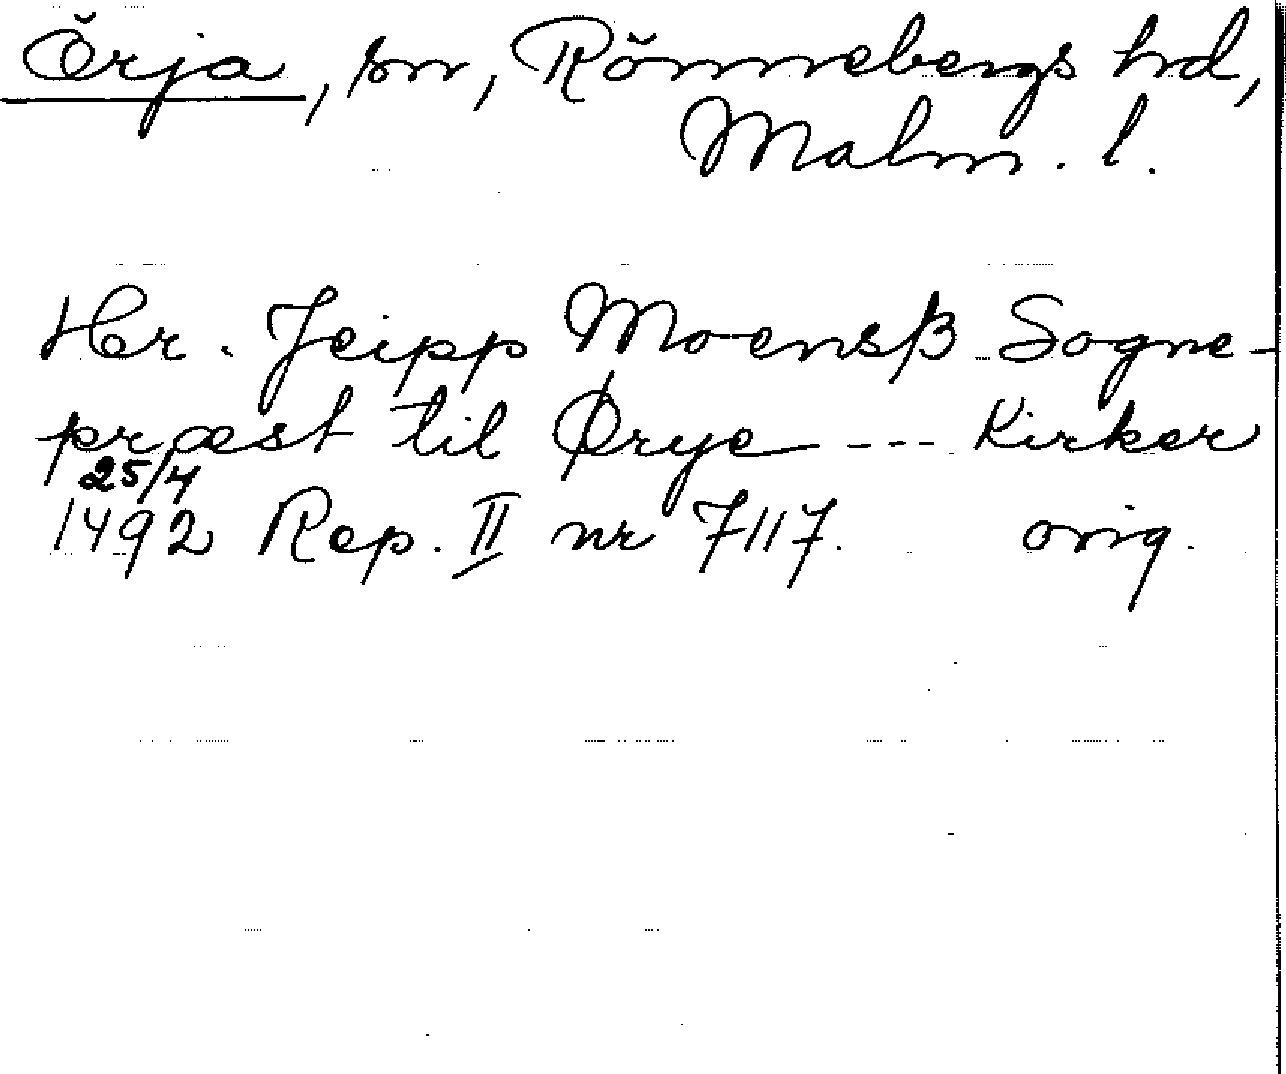 Örja, sn, Rönnebergs hrd,
Malm. l.
Hr. Jeipp Moensß Sogne-
præst til Ørye --- Kirker
25/4
1492 Rep. II nr 7117. orig.